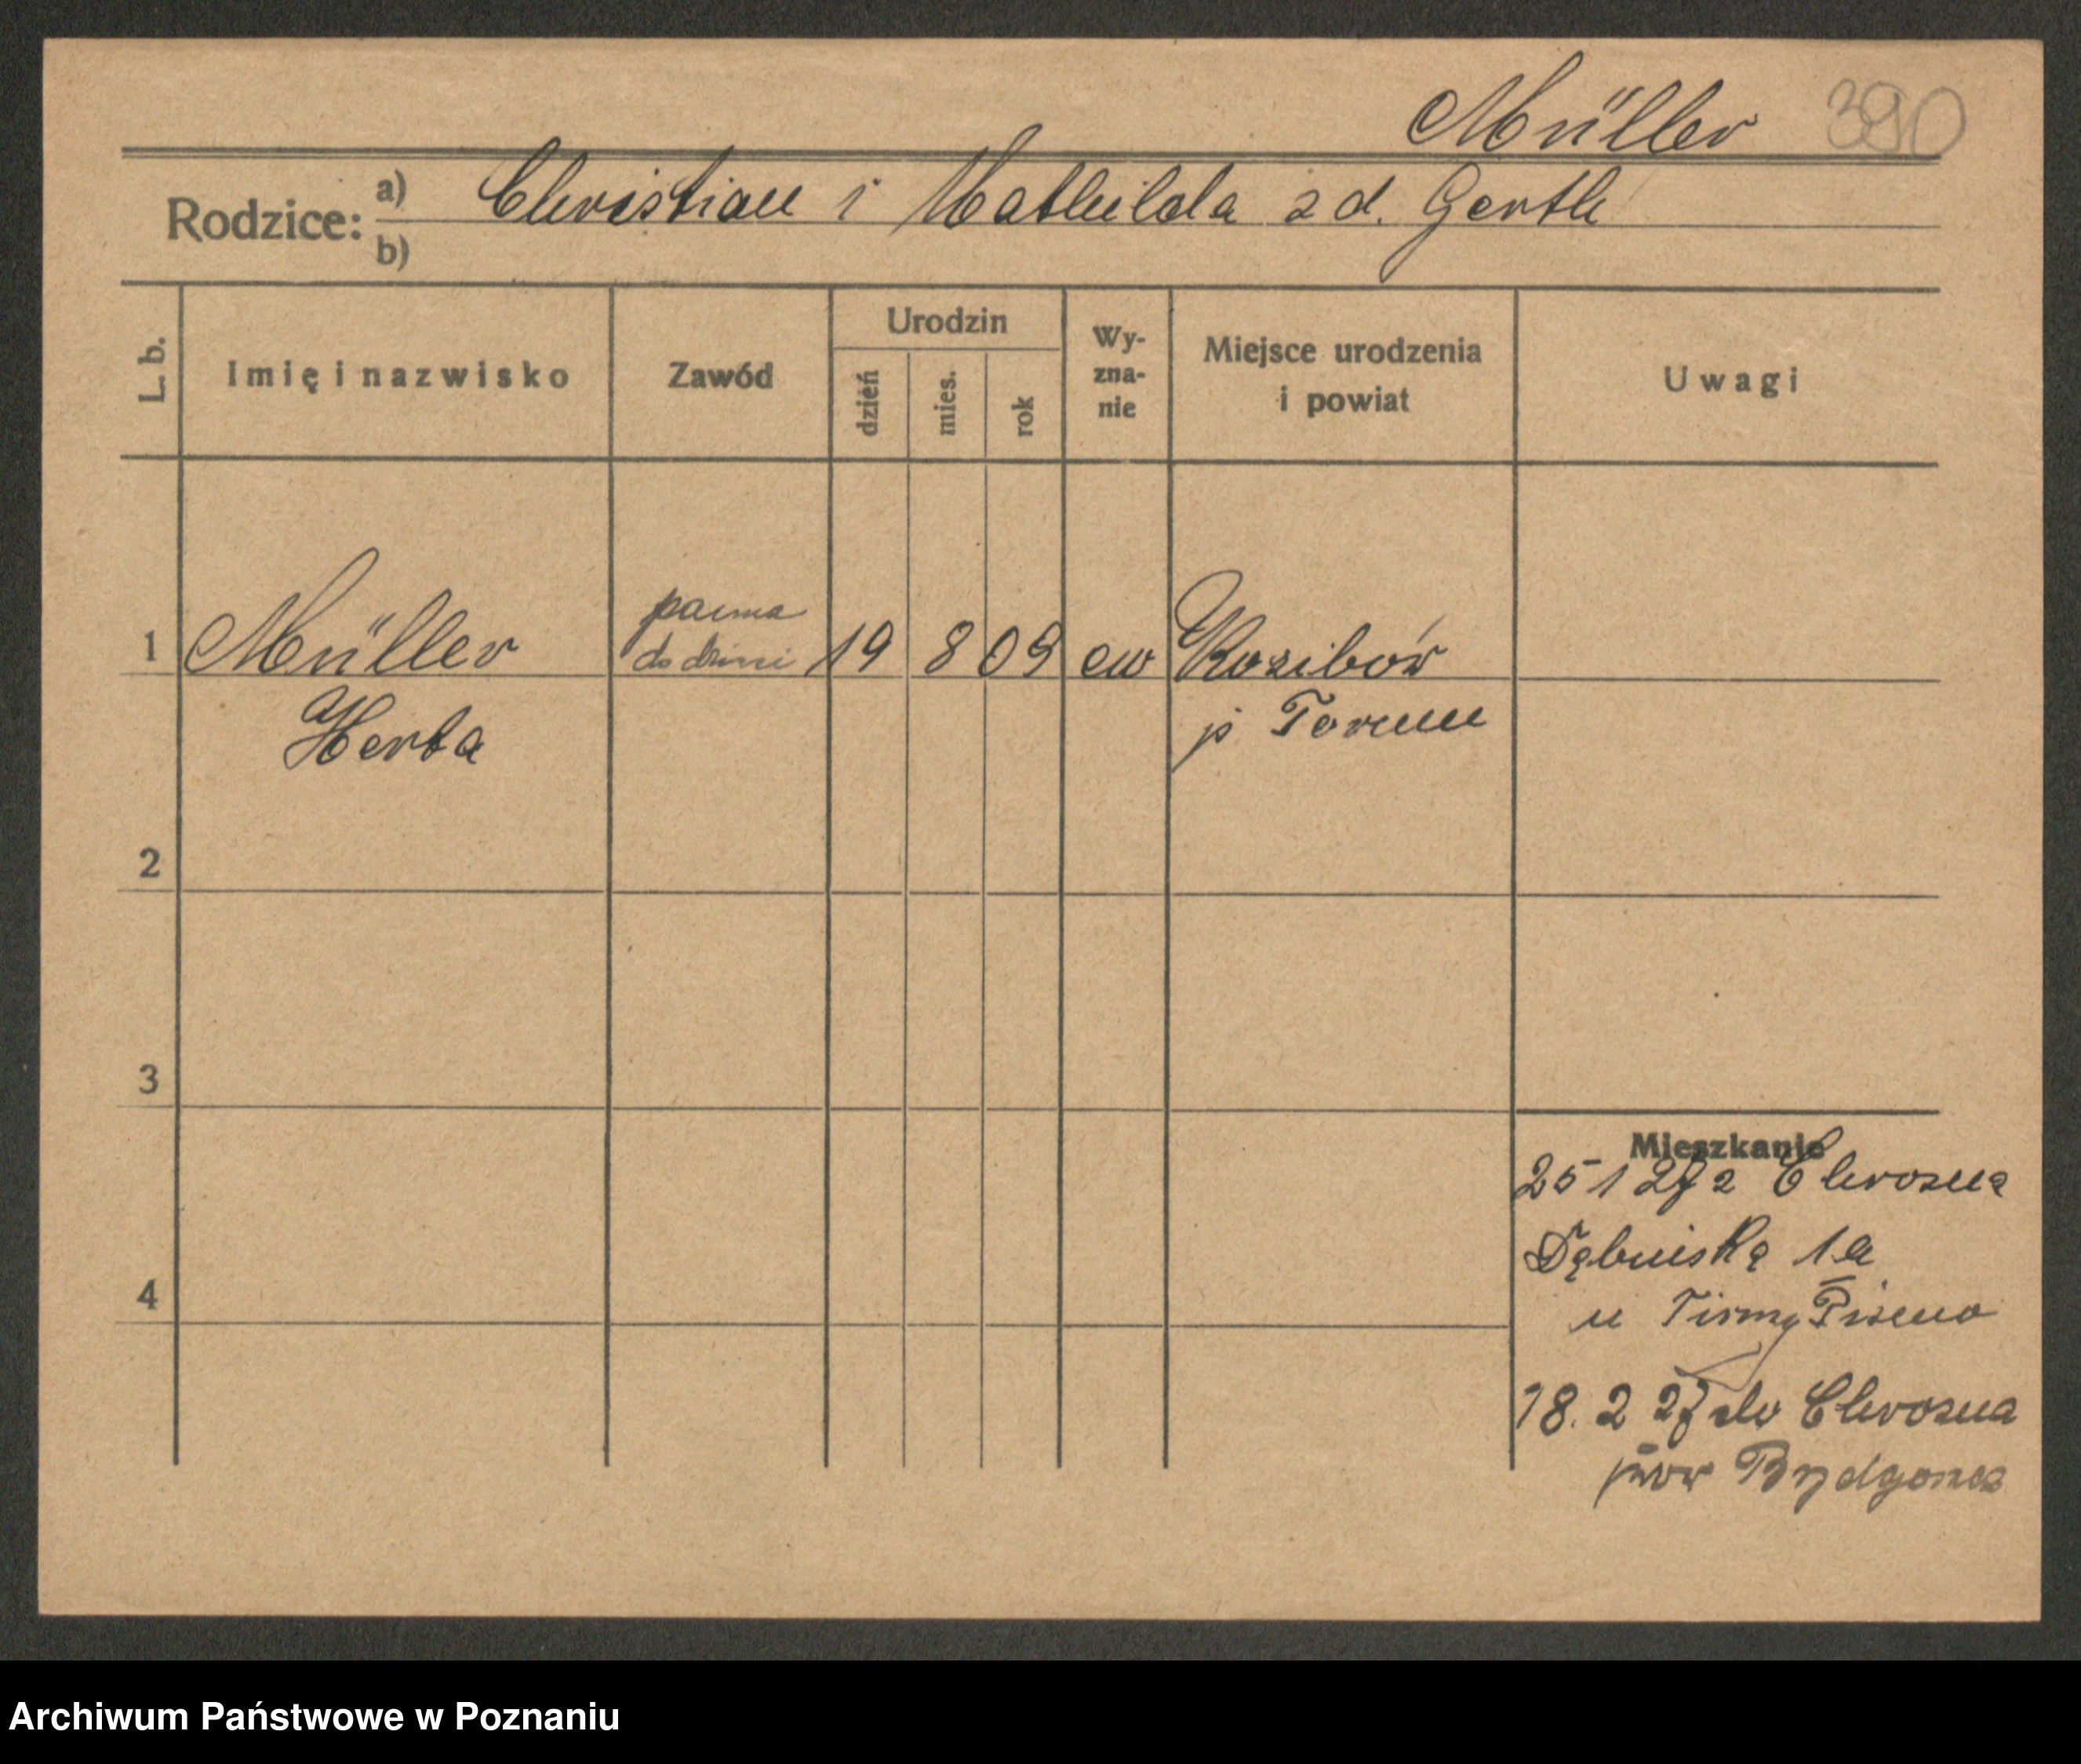 Müller 390
Rodzice: a) Christian i Mathilda z d. Gerth
b)
L. b. Imię i nazwisko Zawód Urodzin dzień mies. rok Wy-zna-nie Miejsce urodzenia i powiat Uwagi
1 Müller panna do dzieci 19 8 09 ew Kozibór
Herta p Toruń
2
3
4
Mieszkanie
25 1 27 z Chrosna
Dębińska 1a
u Firmy
18. 2 27 do Chrosna
pow Bydgoszcz
Archiwum Państwowe w Poznaniu